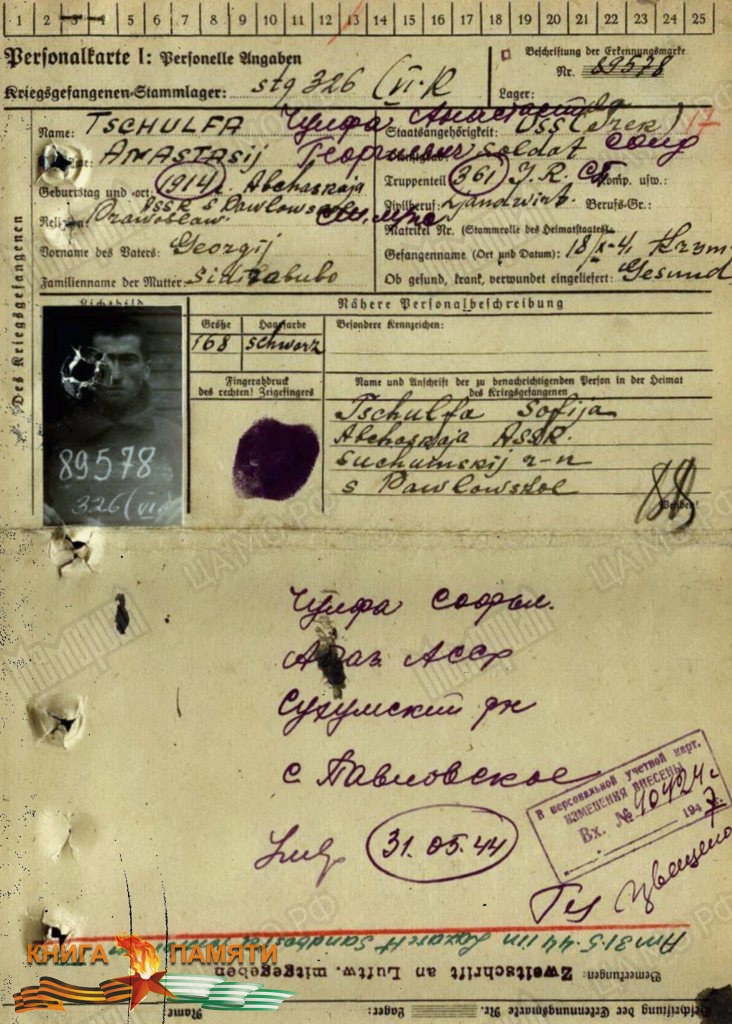 1 2 3 4 5 6 7 8 9 10 11 12 13 14 15 16 17 18 19 20 21 22 23 24 25
Personalkarte I: Personelle Angaben
Kriegsgefangenen-Stammlager: Stg 326 (VI-K
Beschriftung der Erkennungsmarke
Nr. 89578
Lager:
Name: TSCHULFA
Чулфа Анастасий
Staatsangehörigkeit:
17
ANASTASIJ
Георгиевич
Soldat
солд
Geburtstag und -ort: 1914 Abchaskaja
Truppenteil 361 J.R. Komp. usw.:
SSR s Pawlowsk
Zivilberuf: Landwirt Berufs-Gr.:
Religion: Prawoslaw.
Matrikel Nr. (Stammrolle des Heimatstaates)
Vorname des Vaters: Georgij
Gefangennahme (Ort und Datum): Krym
Familienname der Mutter:
Ob gesund, krank, verwundet eingeliefert: Gesund
Des Kriegsgefangenen
Lichtbild
Nähere Personalbeschreibung
Größe Haarfarbe Besondere Kennzeichen:
168 schwarz
Fingerabdruck
des rechten! Zeigefingers
Name und Anschrift der zu benachrichtigenden Person in der Heimat
des Kriegsgefangenen
Tschulfa Sofija
Abchaskaja ASSR.
Suchumskij r-n
s Pawlowskoe
Wenden!
89578
326 (VI
Чулфа Софья.
Абхаз АССР
Сухумский рн
с Павловское
31.05.44
В персональной учетной карт.
ИЗМЕНЕНИЯ ВНЕСЕНЫ
Вх. № 40424
1947 г
Am 31.5.44 im
Bemerkungen: Zweitschrift an Luftw. mitgegeben
Beschriftung der Erkennungsmarke Nr. Lager: Name
КНИГА ПАМЯТИ
ЦАМО РФ
Мемориал